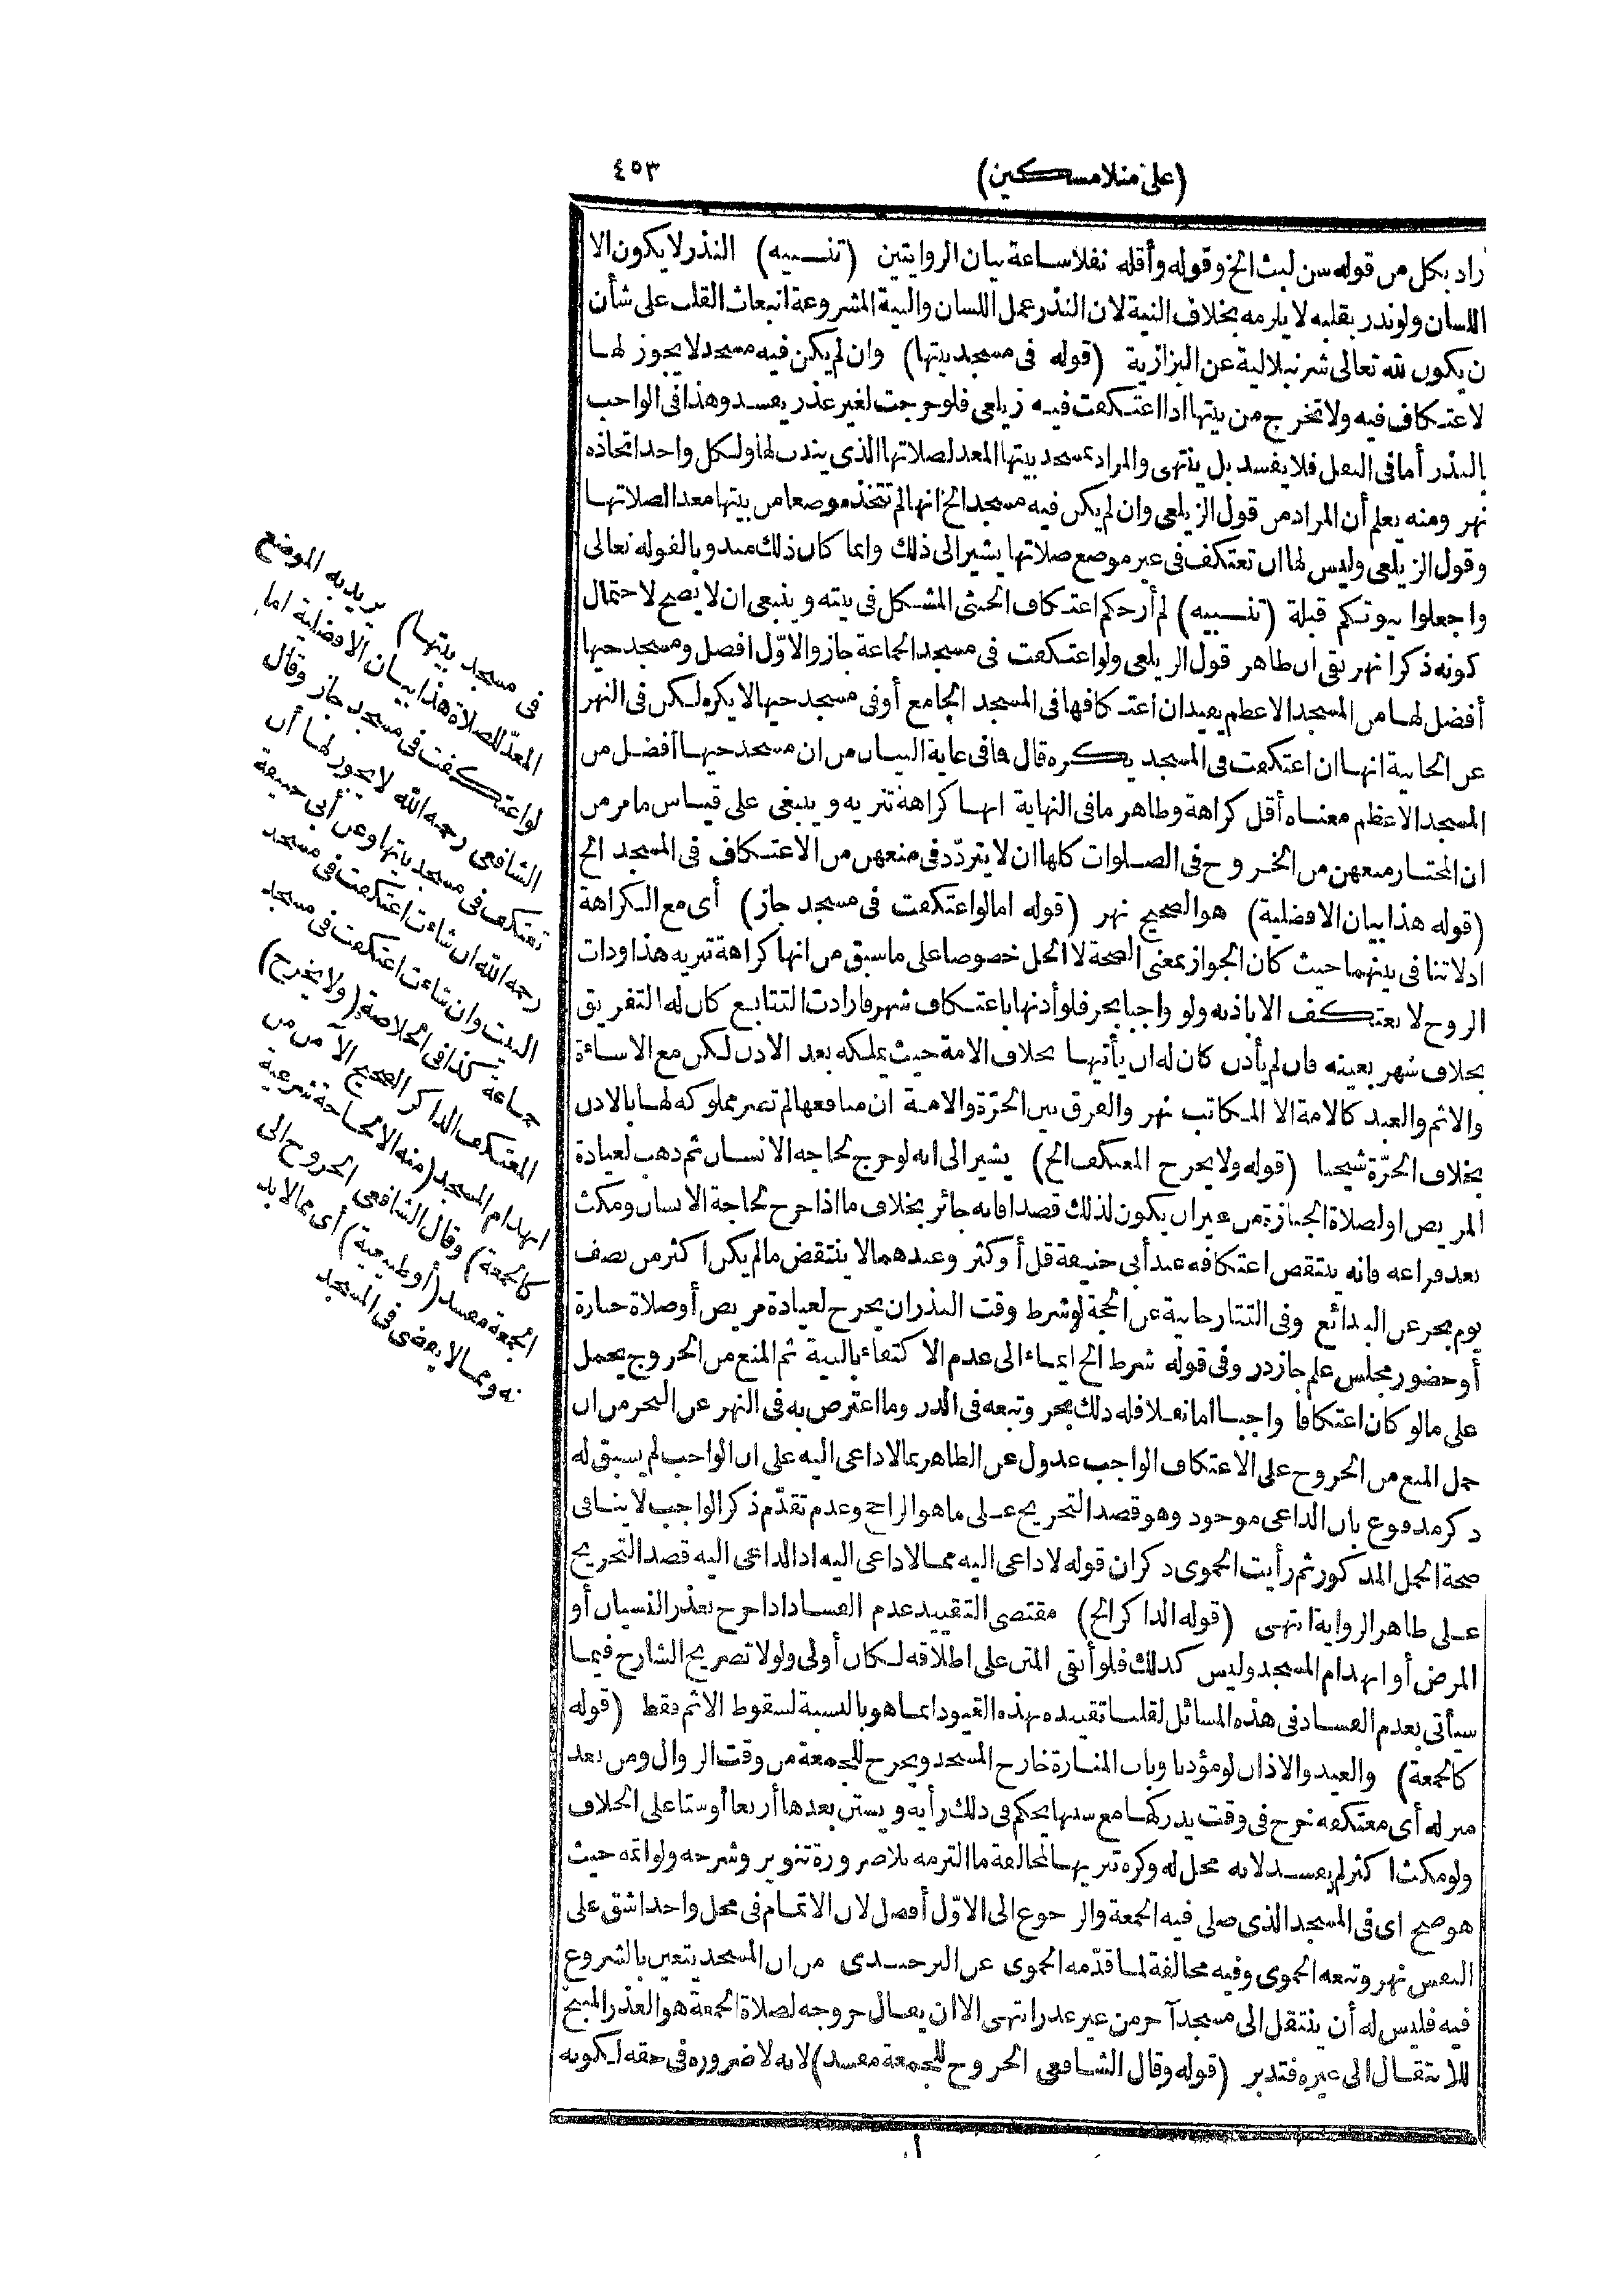 (على منلا مسكين) ٤٥٣
راد بكل من قوله سن لبث الخ وقوله وأقله نفلا ساعة بيان الروايتين (تنبيه) النذر لا يكون الا
اللسان ولو نذر بقلبه لا يلزمه بخلاف النية لان النذر عمل اللسان والنية المشروعة انبعاث القلب على شأن
ن يكون لله تعالى شرنبلالية عن البزازية (قوله فى مسجد بيتها) وان لم يكن فيه مسجد لا يجوز لها
لاعتكاف فيه ولا تخرج من بيتها اذا اعتكفت فيه زيلعى فلو خرجت لغير عذر يفسد وهذا فى الواجب
بالنذر أما فى النفل فلا يفسد بل ينتهى والمراد بمسجد بيتها المعد لصلاتها الذى يندب لها ولكل واحد اتخاذه
نهر ومنه يعلم أن المراد من قول الزيلعى وان لم يكن فيه مسجد الخ انها لم تتخذ موضعا من بيتها معد الصلاتها
وقول الزيلعى وليس لها ان تعتكف فى غير موضع صلاتها يشير الى ذلك وانما كان ذلك مندوبا لقوله تعالى
واجعلوا بيوتكم قبلة (تنبيه) لم أر حكم اعتكاف الخنثى المشكل فى بيته وينبغى ان لا يصح لاحتمال
كونه ذكرا نهر بقى ان ظاهر قول الزيلعى ولو اعتكفت فى مسجد الجماعة جاز والاول افضل ومسجد حيها
أفضل لها من المسجد الاعظم يفيد ان اعتكافها فى المسجد الجامع أو فى مسجد حيها لا يكره لكن فى النهر
عن الخانية انها ان اعتكفت فى المسجد يكره قال فما فى غاية البيان من ان مسجد حيها أفضل من
المسجد الاعظم معناه أقل كراهة وظاهر ما فى النهاية انها كراهة تنزيه وينبغى على قياس ما مر من
ان المختار منعهن من الخروج فى الصلوات كلها ان لا يتردد فى منعهن من الاعتكاف فى المسجد الخ
(قوله هذا بيان الافضلية) هو الصحيح نهر (قوله اما لو اعتكفت فى مسجد جاز) أى مع الكراهة
اذ لا تنافى بينهما حيث كان الجواز بمعنى الصحة لا الحل خصوصا على ما سبق من انها كراهة تنزيه هذا وذات
الزوج لا تعتكف الا باذنه ولو واجبا بحر فلو أذنها باعتكاف شهر فارادت التتابع كان له التفريق
بخلاف شهر بعينه فان لم يأذن كان له ان يأتيها بخلاف الامة حيث يملكه بعد الاذن لكن مع الاساءة
والاثم والعبد كالامة الا المكاتب نهر والفرق بين الحرة والامة ان منافعها لم تصر مملوكة لها بالاذن
بخلاف الحرة شيخنا (قوله ولا يخرج المعتكف الخ) يشير الى انه لو خرج لحاجة الانسان ثم ذهب لعيادة
المريض او لصلاة الجنازة من غير ان يكون لذلك قصدا فانه جائز بخلاف ما اذا خرج لحاجة الانسان ومكث
بعد فراغه فانه ينتقض اعتكافه عند أبى حنيفة قل أو كثر وعندهما لا ينتقض ما لم يكن اكثر من نصف
يوم بحر عن البدائع وفى التتارخانية عن الحجة لو شرط وقت النذر ان يخرج لعيادة مريض أو صلاة جنازة
أو حضور مجلس علم جاز در وفى قوله شرط الخ ايماء الى عدم الاكتفاء بالنية ثم المنع من الخروج يحمل
على ما لو كان اعتكافا واجبا اما نفلا فله ذلك بحر وتبعه فى الدر وما اعترض به فى النهر عن البحر من ان
حمل المنع من الخروج على الاعتكاف الواجب عدول عن الظاهر بما لا داعى اليه على ان الواجب لم يسبق له
ذكر مدفوع بان الداعى موجود وهو قصد التخريج على ما هو الراجح وعدم تقدم ذكر الواجب لا ينافى
صحة الحمل المذكور ثم رأيت الحموى ذكر ان قوله لا داعى اليه مما لا داعى اليه اذ الداعى اليه قصد التخريج
على ظاهر الرواية انتهى (قوله الذاكر الخ) مقتضى التقييد عدم الفساد اذا خرج بعذر النسيان أو
المرض أو انهدام المسجد وليس كذلك فلو أبقى المتن على اطلاقه لكان أولى ولولا تصريح الشارح فيما
سيأتى بعدم الفساد فى هذه المسائل لقلنا تقييده بهذه القيود انما هو بالنسبة لسقوط الاثم فقط (قوله
كالجمعة) والعيد والاذان لو مؤذنا وباب المنارة خارج المسجد ويخرج للجمعة من وقت الزوال ومن بعد
منزله أى معتكفه خرج فى وقت يدركها مع سنتها يحكم فى ذلك رأيه ويستن بعدها أربعا أو ستا على الخلاف
ولو مكث اكثر لم يفسد لانه محل له وكره تنزيها لمخالفة ما التزمه بلا ضرورة تنوير وشرحه ولو اتمه حيث
هو صح اى فى المسجد الذى صلى فيه الجمعة والرجوع الى الاول أفضل لان الاتمام فى محل واحد اشق على
النفس نهر وتبعه الحموى وفيه مخالفة لما قدمه الحموى عن البرجندى من ان المسجد يتعين بالشروع
فيه فليس له أن ينتقل الى مسجد آخر من غير عذر انتهى الا ان يقال خروجه لصلاة الجمعة هو العذر المبيح
للانتقال الى غيره فتدبر (قوله وقال الشافعى الخروج للجمعة مفسد) لانه لا ضرورة فى حقه لكونه
فى مسجد بيتها) يريد به الموضع
المعد للصلاة هذا بيان الافضلية اما
لو اعتكفت فى مسجد جاز وقال
الشافعى رحمه الله لا يجوز لها أن
تعتكف فى مسجد بيتها وعن أبى حنيفة
رحمه الله ان شاءت اعتكفت فى مسجد
البيت وان شاءت اعتكفت فى مسجد
جماعة كذا فى الخلاصة (ولا يخرج)
المعتكف الذاكر الصحيح الآمن من
انهدام المسجد (منه الا لحاجة شرعية
كالجمعة) وقال الشافعى الخروج الى
الجمعة مفسد (أو طبيعية) أى مما لا بد
نه ومما لا يقضى فى المسجد